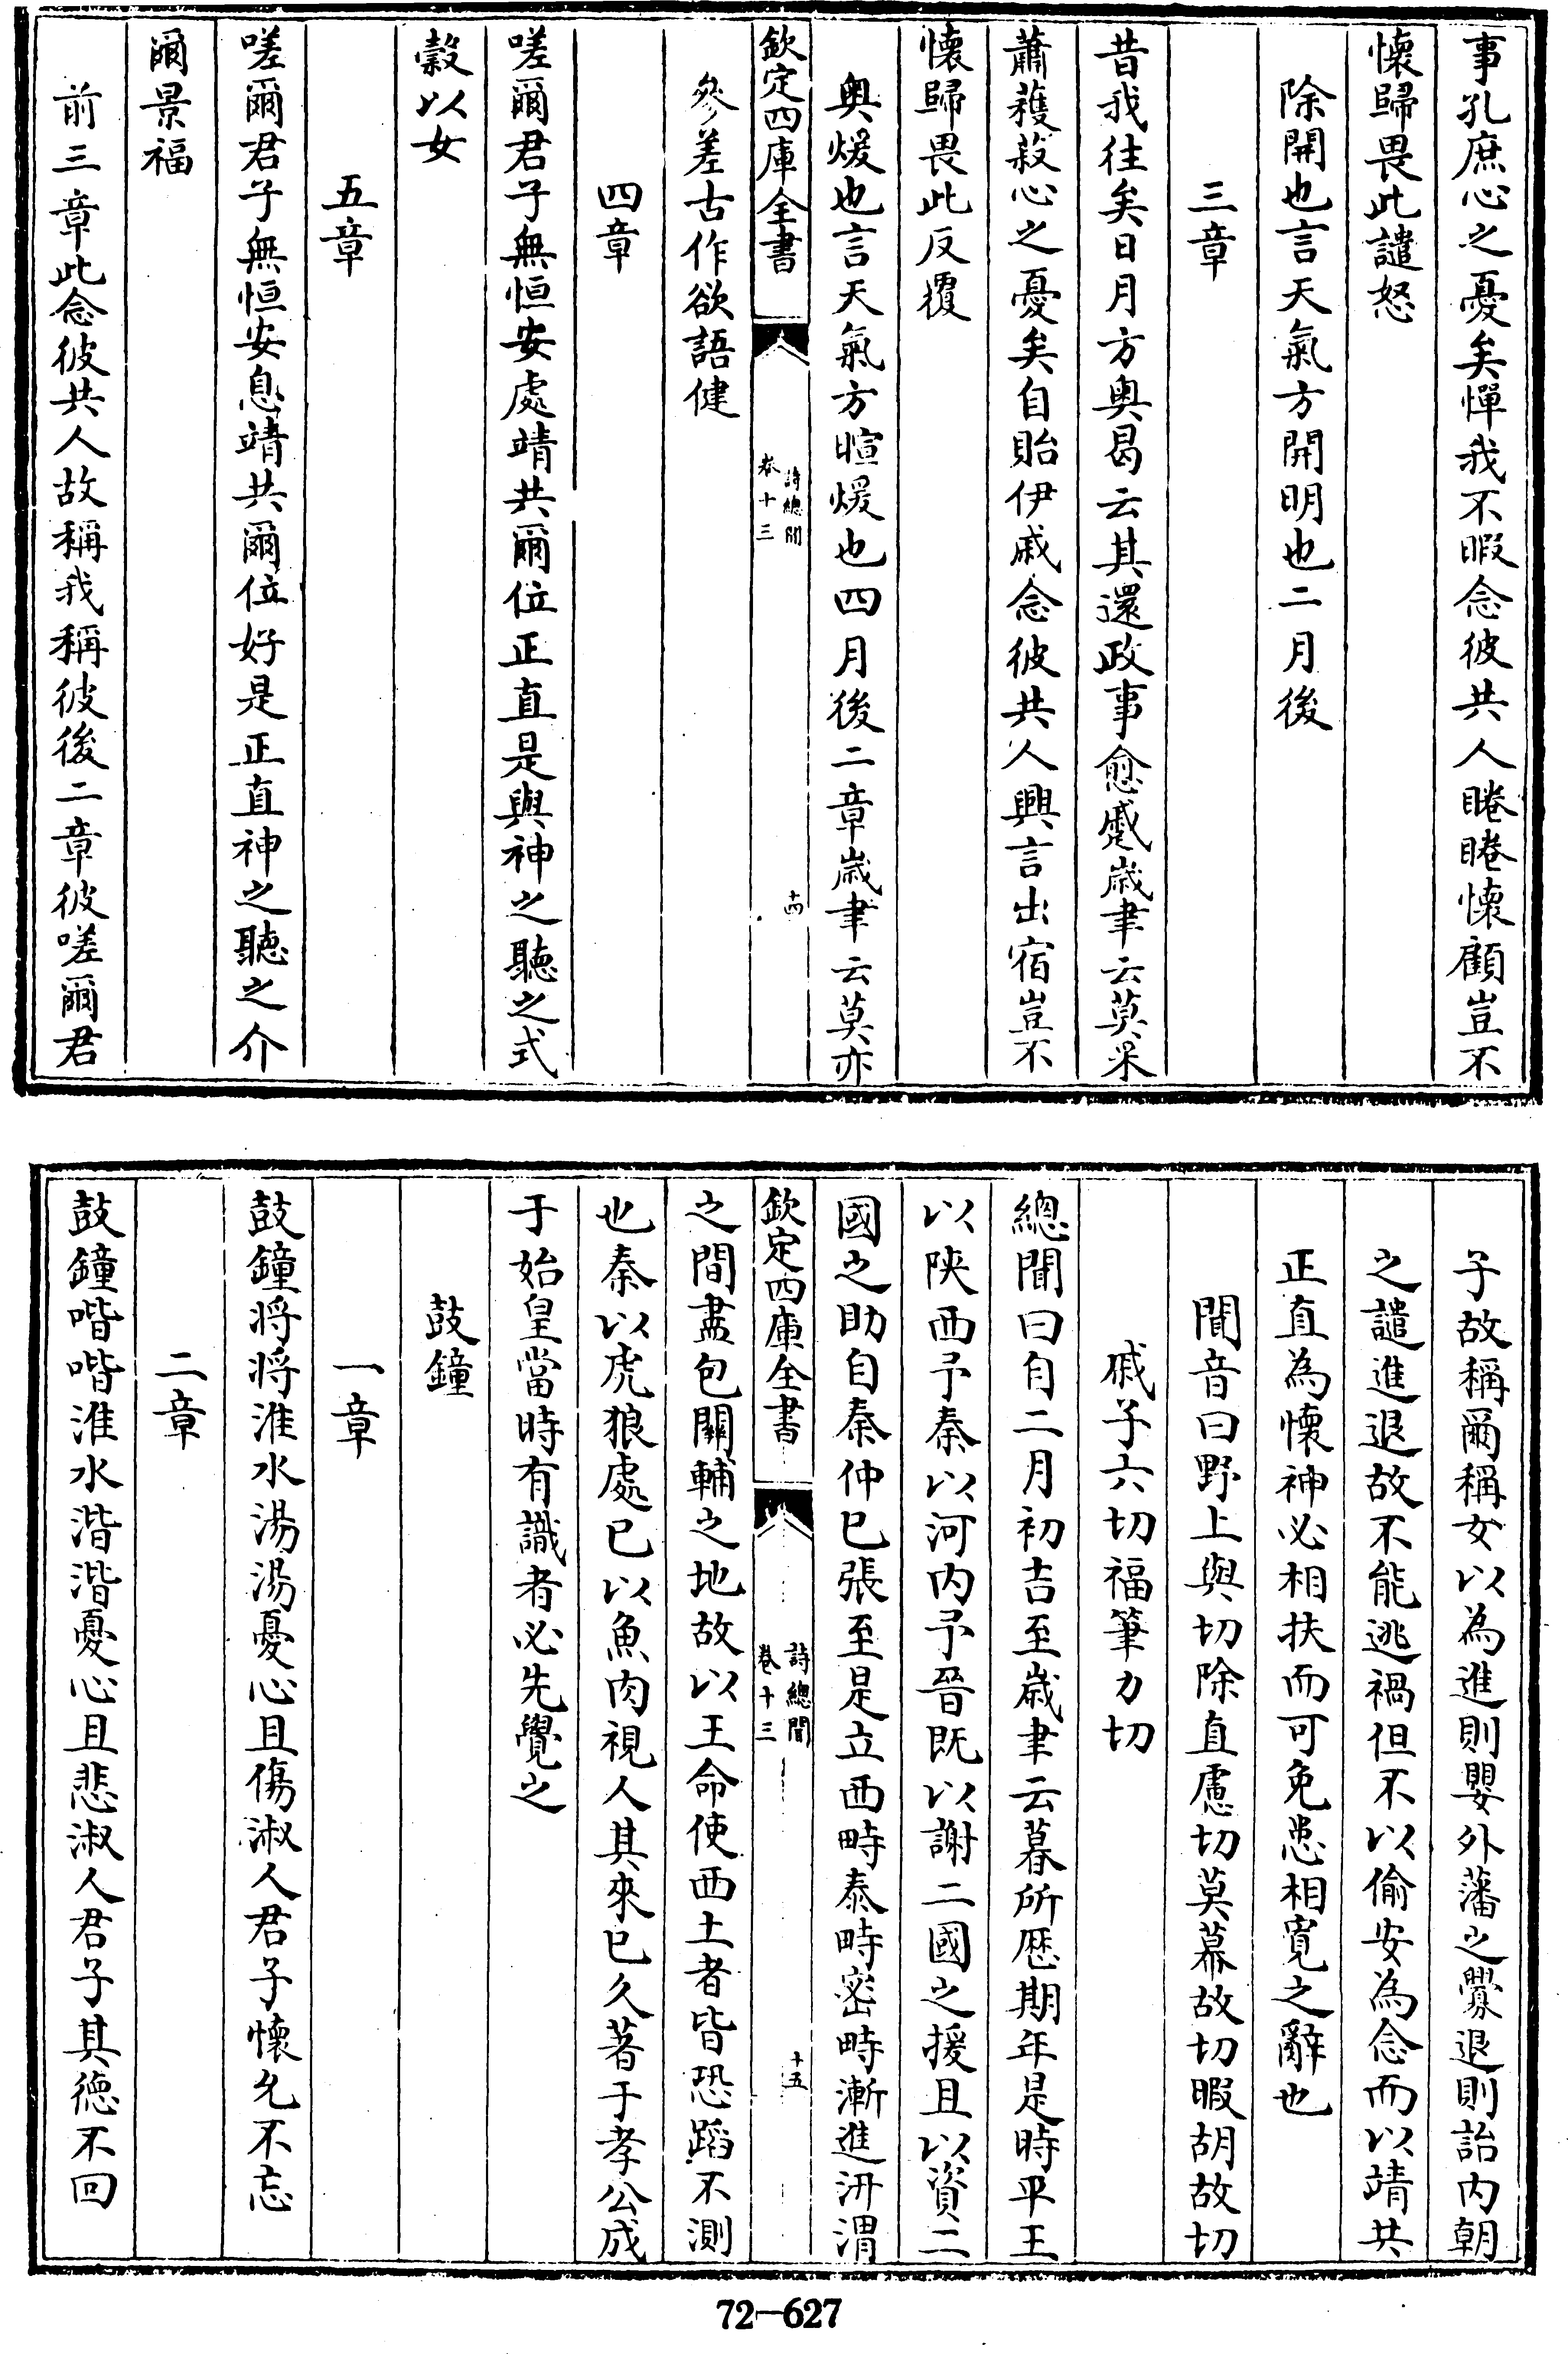 事孔庶心之憂矣憚我不暇念彼共人睠睠懷顧豈不
懷歸畏此譴怒
除開也言天氣方開明也二月後
三章
昔我往矣日月方奥曷云其還政事愈蹙歲聿云莫采
蕭穫菽心之憂矣自貽伊戚念彼共人興言出宿豈不
懷歸畏此反覆
奥煖也言天氣方暄煖也四月後二章歲聿云莫亦
欽定四庫全書
詩總聞
卷十三
十四
參差古作欲語健
四章
嗟爾君子無恒安處靖共爾位正直是與神之聽之式
穀以女
五章
嗟爾君子無恒安息靖共爾位好是正直神之聽之介
爾景福
前三章此念彼共人故稱我稱彼後二章彼嗟爾君
子故稱爾稱女以為進則嬰外藩之釁退則詒内朝
之譴進退故不能逃禍但不以偷安為念而以靖共
正直為懷神必相扶而可免患相寛之辭也
聞音曰野上與切除直慮切莫幕故切暇胡故切
戚子六切福筆力切
總聞曰自二月初吉至歲聿云暮所歴期年是時平王
以陜西予秦以河内予晉既以謝二國之援且以資二
國之助自秦仲已張至是立西畤泰畤密畤漸進汧渭
欽定四庫全書
詩總聞
卷十三
十五
之間盡包關輔之地故以王命使西土者皆恐蹈不測
也秦以虎狼處已以魚肉視人其來已久著于孝公成
于始皇當時有識者必先覺之
鼓鐘
一章
鼓鐘將將淮水湯湯憂心且傷淑人君子懷允不忘
二章
鼓鐘喈喈淮水湝湝憂心且悲淑人君子其德不回
72-627